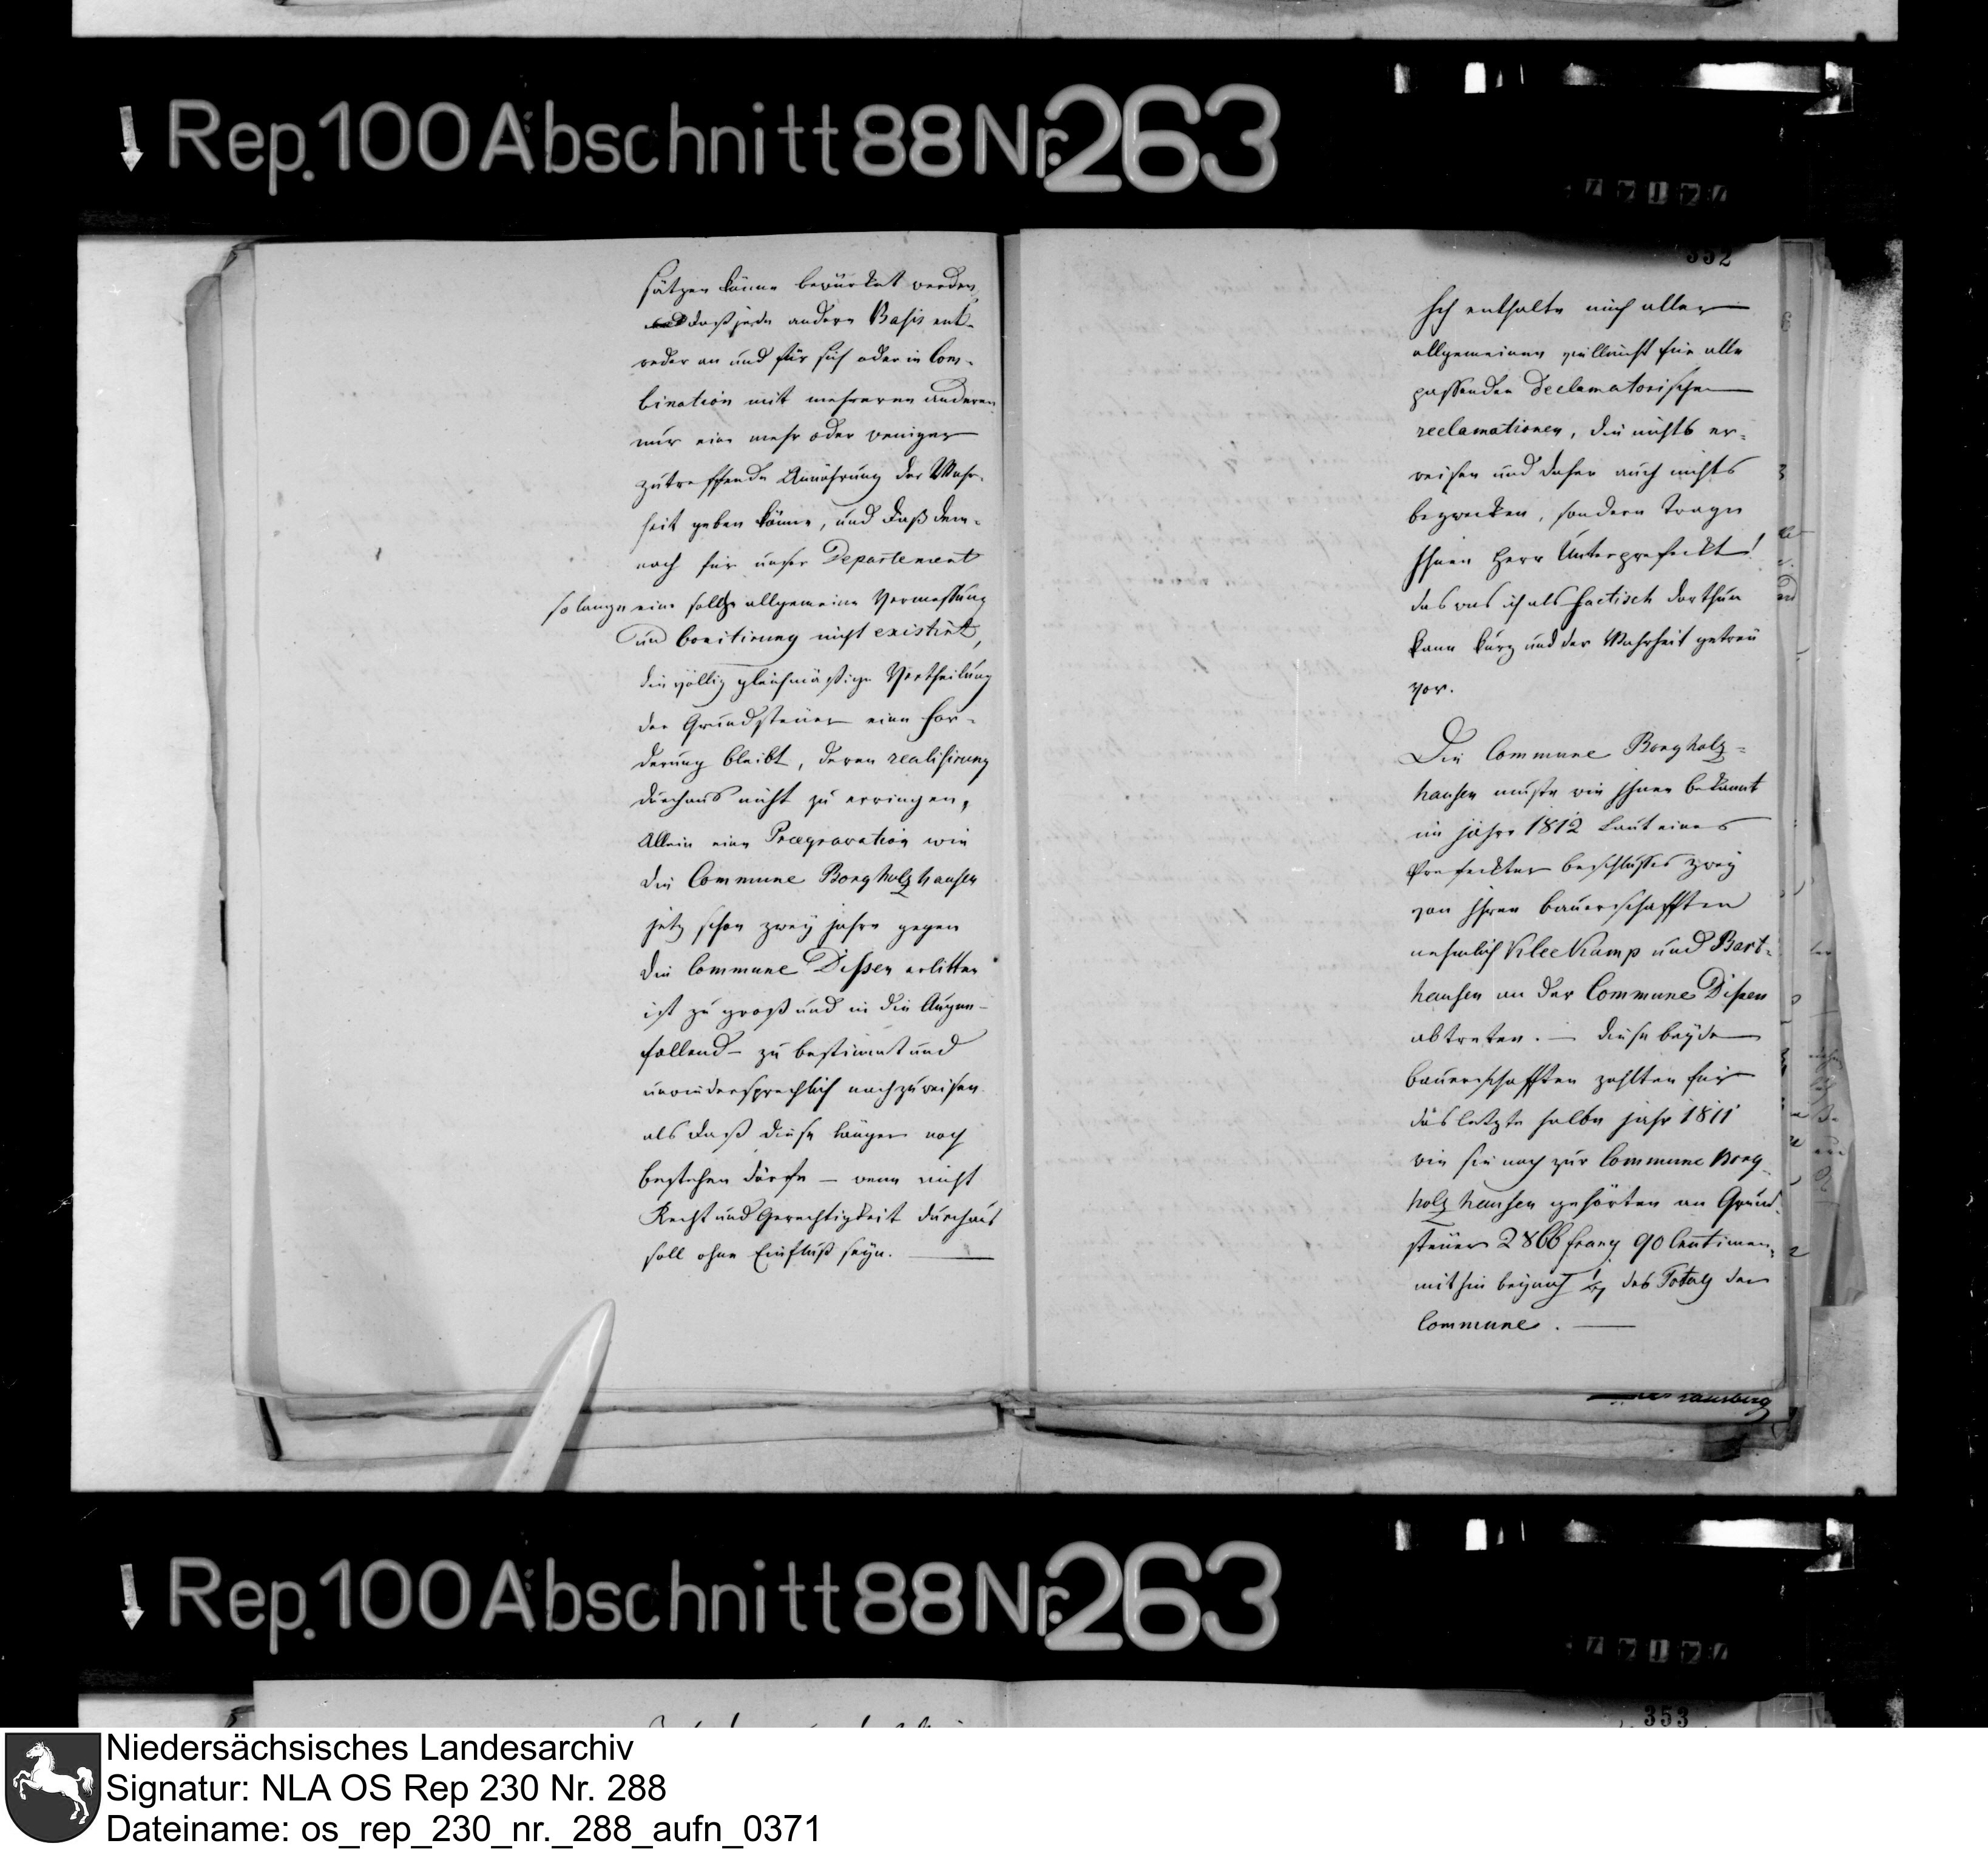 Rep. 100 Abschnitt 88 Nr. 263
sätzen könne bewürket werden,
daß jede andere Basis ent-
weder an und für sich oder in Com-
bination mit mehreren anderen
nur eine mehr oder weniger
zutreffende Annährung der Wahr-
heit geben könne, und daß dem-
nach für unser Departement
so lange eine solche allgemeine Vermessung
und bonitirung nicht existirt,
die völlig gleichmäßige Vertheilung
der Grundsteuer eine For-
derung bleibt, deren realisirung
durchaus nicht zu erringen,
Allein eine Praegravation wie
die Commune Borgholzhausen
jetz schon zwey jahre gegen
die Commune Dissen erlitten
ist zu groß und in die Augen-
fallend – zu bestimt und
unwidersprechlich nachzuweisen
als daß diese länger noch
bestehen dörfe – wenn nicht
Recht und Gerechtigkeit durchaus
soll ohne Einfluß seyn. —
332
Ich enthalte mich aller
allgemeinen vielleicht für alle
passenden declamatorischen
reclamationen, die nichts er-
weisen und daher auch nichts
bezwecken, sondern trage
Ihnen Herr Unterprefeckt!
das was ich als factisch darthun
kann kurz und der Wahrheit getreu
vor.
Die Commune Borgholz-
hausen muste wie Ihnen bekannt
im jahre 1812 laut eines
Prefecktur beschlusses zwey
von Ihren bauerschafften
nehmlich Kleekamp und Bart-
hausen an der Commune Dissen
abtreten. — diese beyde
bauerschafften zahlten für
das letzte halbe jahr 1811
wie sie noch zur Commune Borg-
holzhausen gehörten an Grund-
steuer 2866 franz 90 Centimen,
mithin beynah des Totals der
Commune. —
Rep. 100 Abschnitt 88 Nr. 263
353
Niedersächsisches Landesarchiv
Signatur: NLA OS Rep 230 Nr. 288
Dateiname: os_rep_230_nr._288_aufn_0371